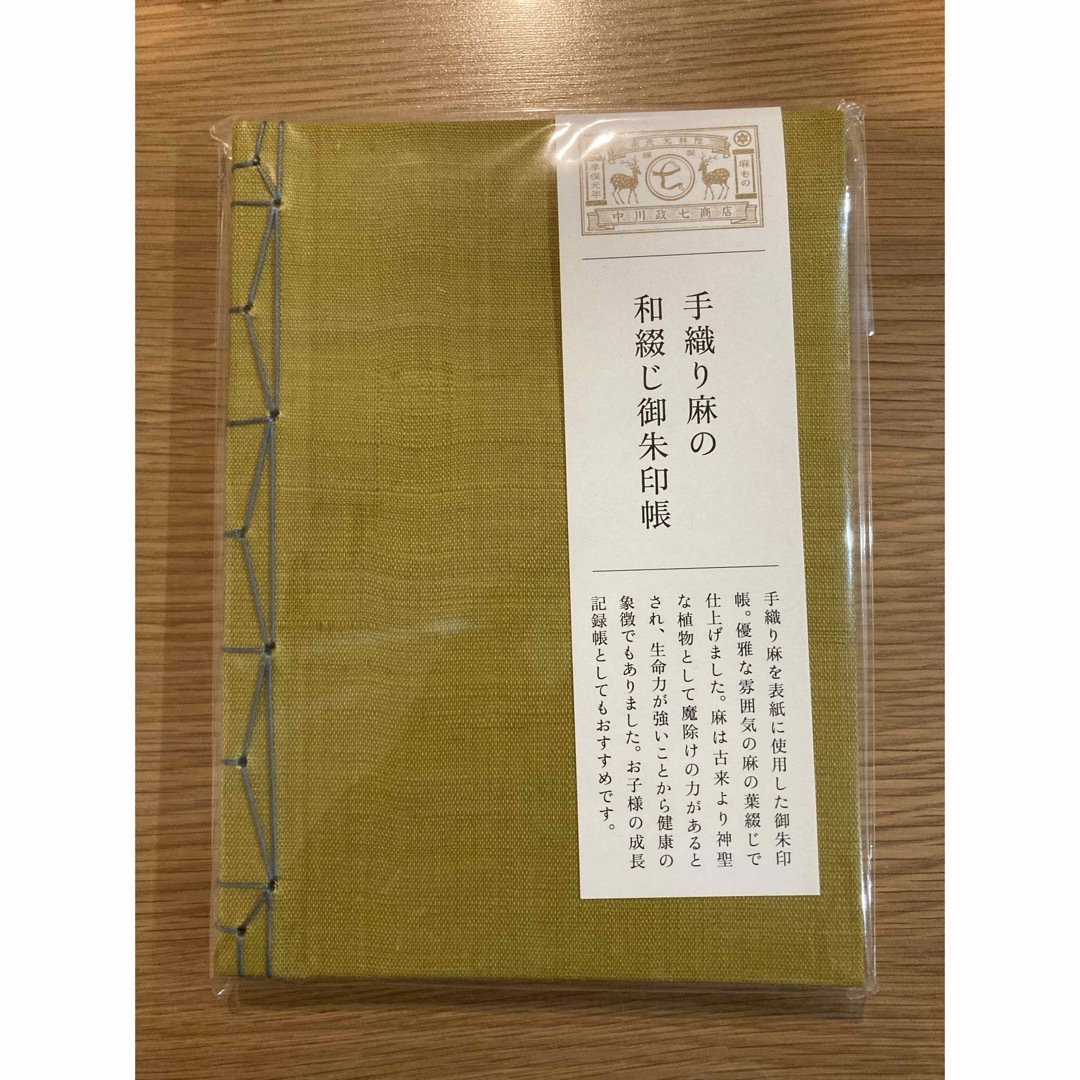 麻もの
享保元年
七
中川政七商店
手織り麻の
和綴じ御朱印帳
手織り麻を表紙に使用した御朱印
帳。優雅な雰囲気の麻の葉綴じで
仕上げました。麻は古来より神聖
な植物として魔除けの力があると
され、生命力が強いことから健康の
象徴でもありました。お子様の成長
記録帳としてもおすすめです。